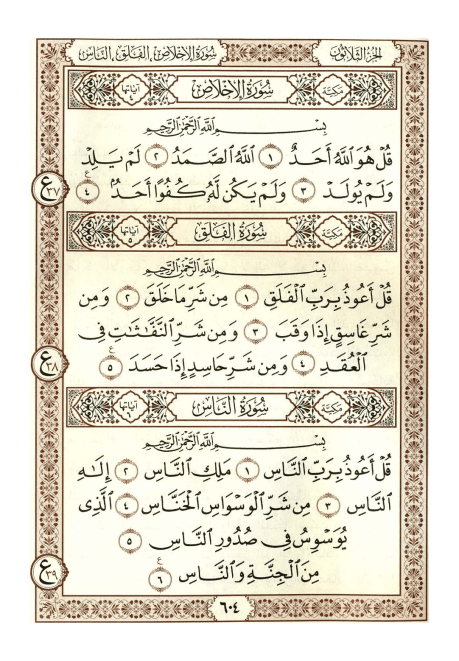 الجزء الثلاثون سورة الإخلاص، الفلق، الناس
مكية سورة الإخلاص آياتها ٤
بِسْمِ اللَّهِ الرَّحْمَٰنِ الرَّحِيمِ
قُلْ هُوَ ٱللَّهُ أَحَدٌ ١ ٱللَّهُ ٱلصَّمَدُ ٢ لَمْ يَلِدْ
وَلَمْ يُولَدْ ٣ وَلَمْ يَكُن لَّهُۥ كُفُوًا أَحَدٌۢ ٤
ع ٣٧
مكية سورة الفلق آياتها ٥
بِسْمِ اللَّهِ الرَّحْمَٰنِ الرَّحِيمِ
قُلْ أَعُوذُ بِرَبِّ ٱلْفَلَقِ ١ مِن شَرِّ مَا خَلَقَ ٢ وَمِن
شَرِّ غَاسِقٍ إِذَا وَقَبَ ٣ وَمِن شَرِّ ٱلنَّفَّٰثَٰتِ فِى
ٱلْعُقَدِ ٤ وَمِن شَرِّ حَاسِدٍ إِذَا حَسَدَ ٥
ع ٣٨
مكية سورة الناس آياتها ٦
بِسْمِ اللَّهِ الرَّحْمَٰنِ الرَّحِيمِ
قُلْ أَعُوذُ بِرَبِّ ٱلنَّاسِ ١ مَلِكِ ٱلنَّاسِ ٢ إِلَٰهِ
ٱلنَّاسِ ٣ مِن شَرِّ ٱلْوَسْوَاسِ ٱلْخَنَّاسِ ٤ ٱلَّذِى
يُوَسْوِسُ فِى صُدُورِ ٱلنَّاسِ ٥
مِنَ ٱلْجِنَّةِ وَٱلنَّاسِ ٦
ع ٣٩
٦٠٤